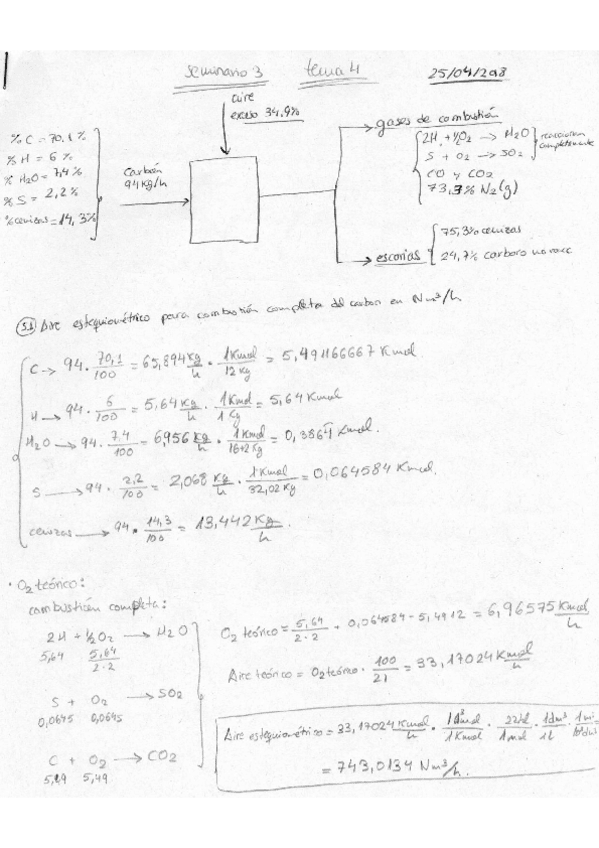 seminario 3 tema 4 25/04/2018
aire
exceso 34.9%
gases de combustión
2H + ½O2 → H2O
S + O2 → SO2
reaccionan completamente
CO y CO2
73,3% N2(g)
%C = 70,1%
%H = 6%
%H2O = 7,4%
%S = 2,2%
%cenizas = 14,3%
Carbón
94 Kg/h
escorias
75,3% cenizas
24,7% carbono no reacc.
Aire estequiométrico para combustión completa del carbon en Nm³/h
C → 94 · 70,1/100 = 65,894 Kg/h · 1 Kmol/12 Kg = 5,491166667 Kmol
H → 94 · 6/100 = 5,64 Kg/h · 1 Kmol/1 Kg = 5,64 Kmol
H2O → 94 · 7,4/100 = 6,956 Kg/h · 1 Kmol/16+2 Kg = 0,3864 Kmol.
S → 94 · 2,2/100 = 2,068 Kg/h · 1 Kmol/32,02 Kg = 0,064584 Kmol.
cenizas → 94 · 14,3/100 = 13,442 Kg/h.
· O2 teórico:
combustión completa:
2H + ½O2 → H2O
5,64 5,64/2·2
S + O2 → SO2
0,0645 0,0645
C + O2 → CO2
5,49 5,49
O2 teórico = 5,64/2·2 + 0,064584 - 5,4912 = 6,96575 Kmol/h
Aire teórico = O2 teórico · 100/21 = 33,17024 Kmol/h
Aire estequiométrico = 33,17024 Kmol/h · mol/1 Kmol · 22,4 l/1 mol · 1 dm³/1 l ·
= 743,0134 Nm³/h.